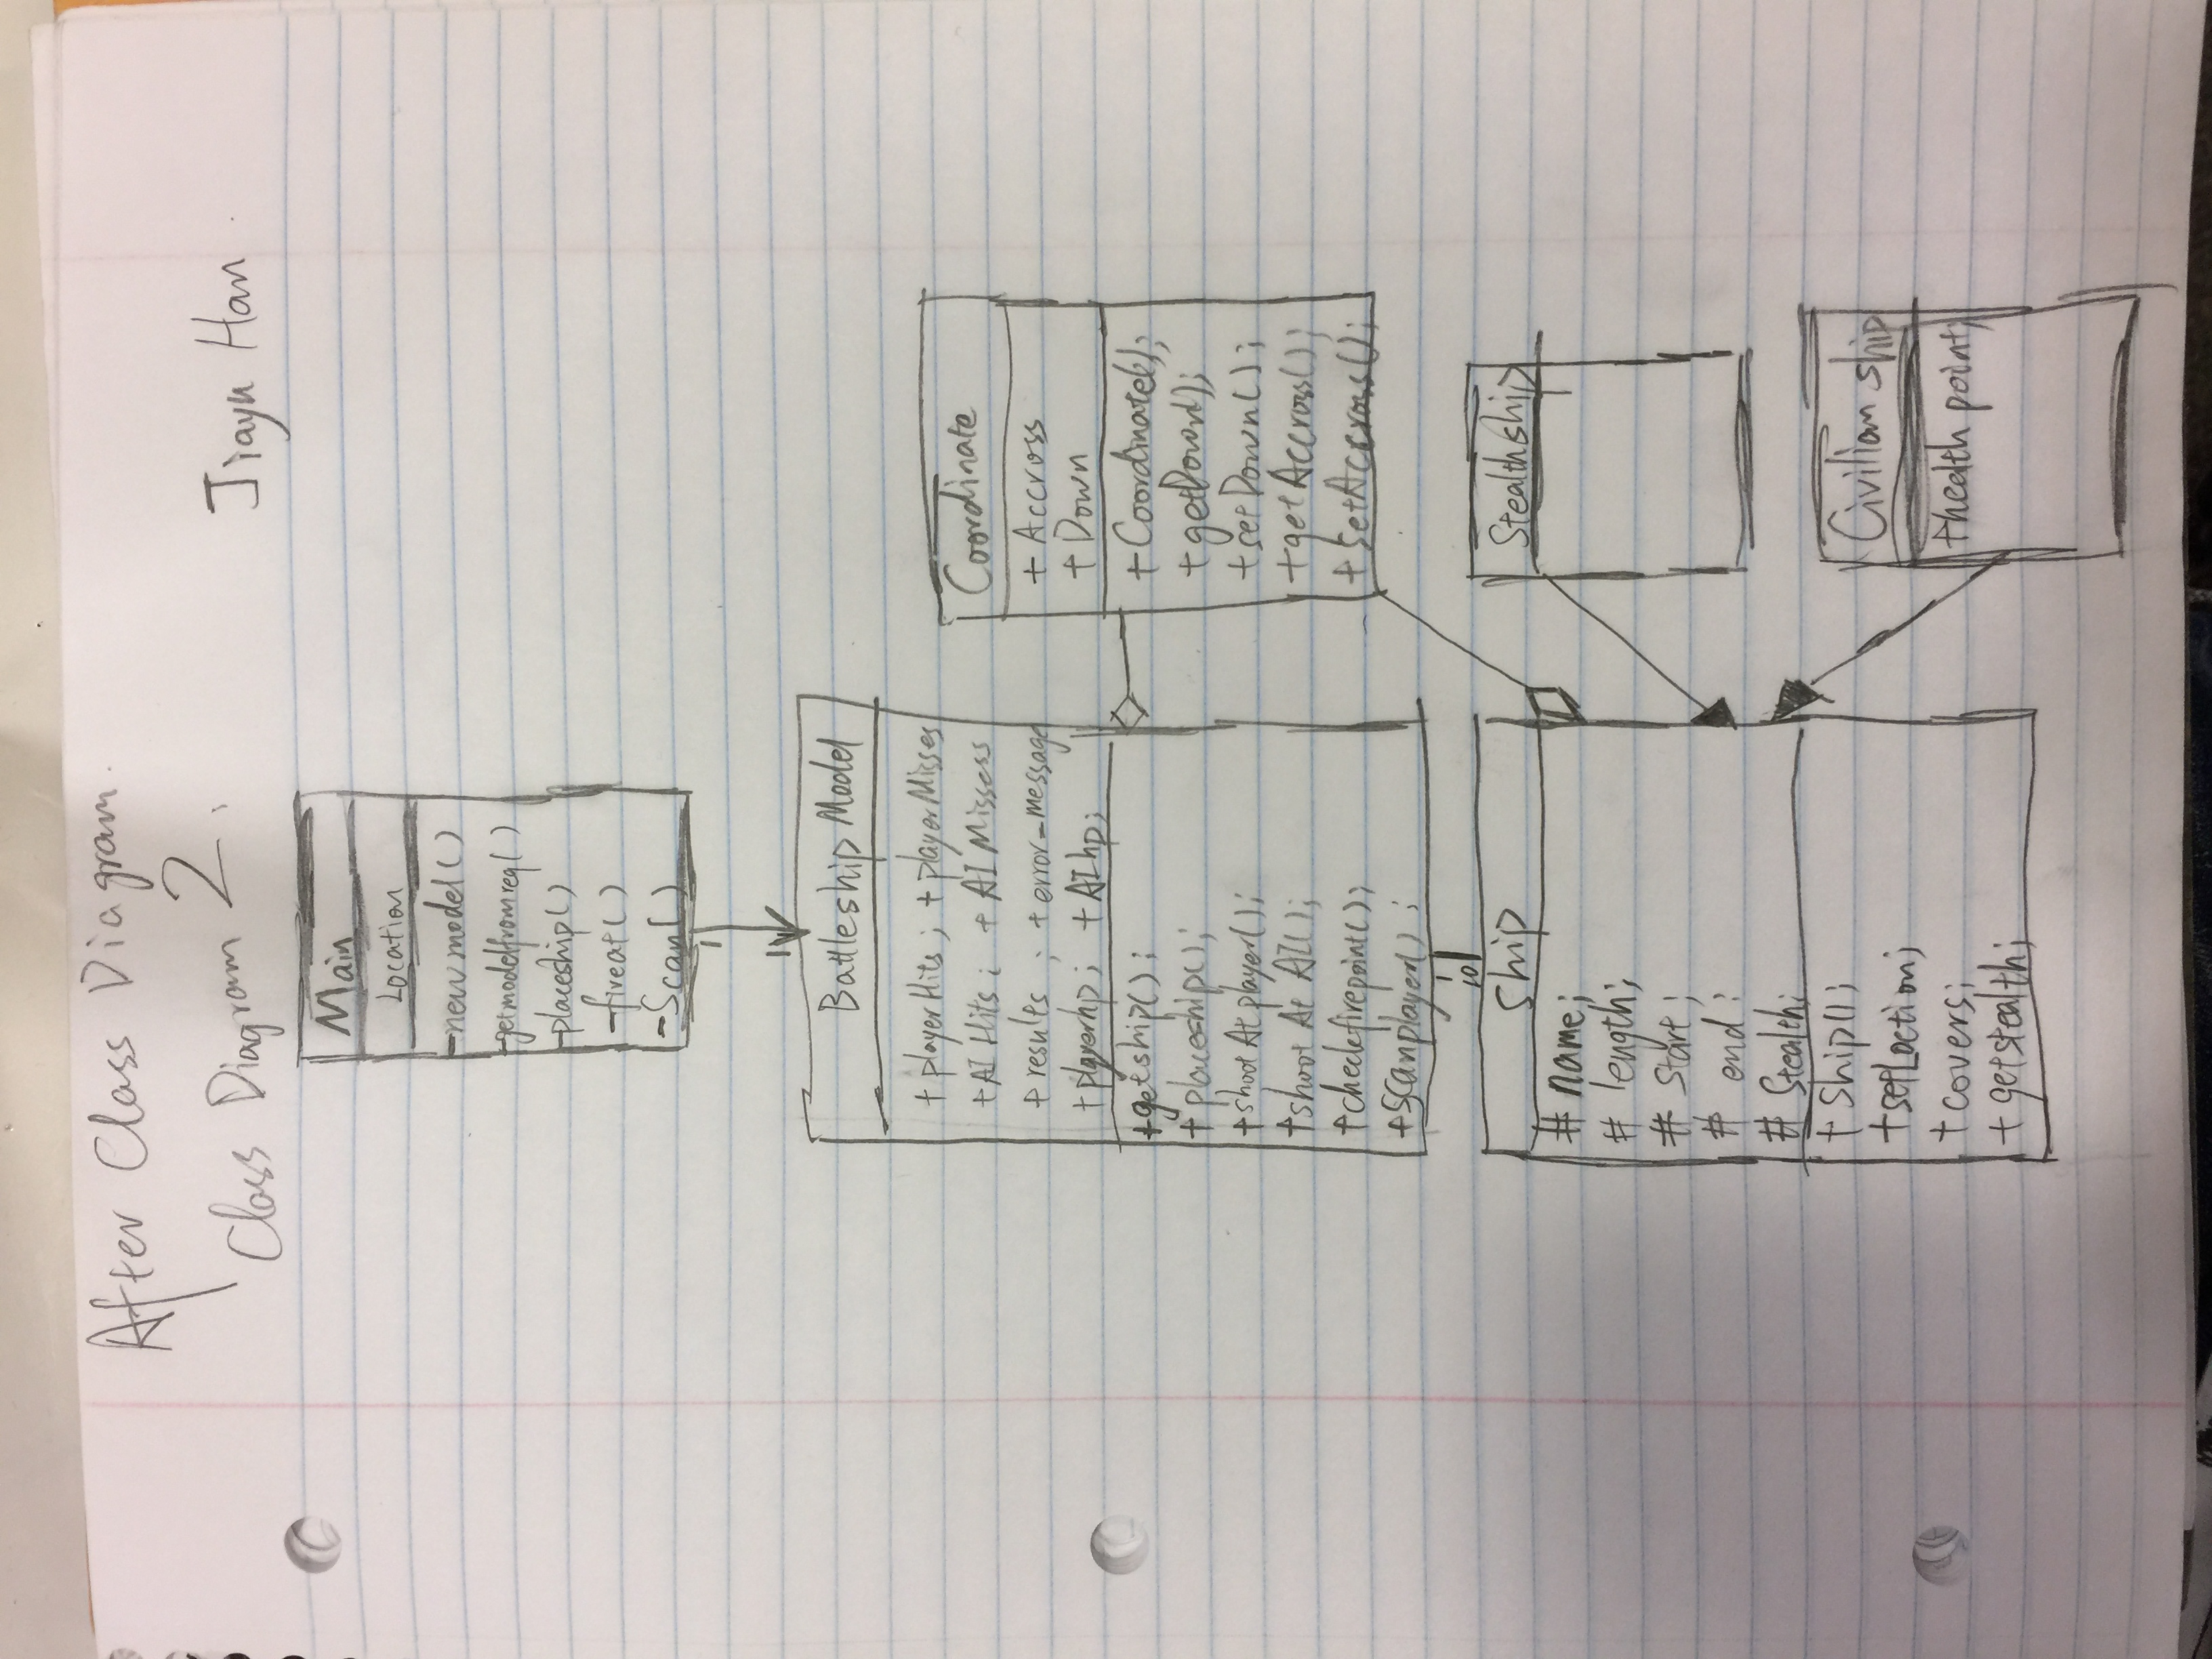 After Class Diagram.
Class Diagram 2.
Jiayu Han.
Main
Location
-newmodel()
-getmodelfromreq()
-placeship()
-fireat()
-Scan()
1
1
Battleship Model
+ playerHits ; + playerMisses
+AI Hits ; + AI Missess
+ results ; + error-message
+ playerhp ; + AIhp;
+getship();
+ placeship();
+shootAtplayer();
+shoot At AI();
+checkfirepoint();
+Scanplayer() ;
Coordinate
+ Accross
+ Down
+Coordinate();
+getDown();
+setDown();
+getAccross();
+setAccross();
1
10
Ship
# name;
# length;
# Start ;
# end :
# Stealth;
+ Ship();
+setLoction;
+ covers;
+ getstealth;
Stealthship
Civilian ship
+health point;